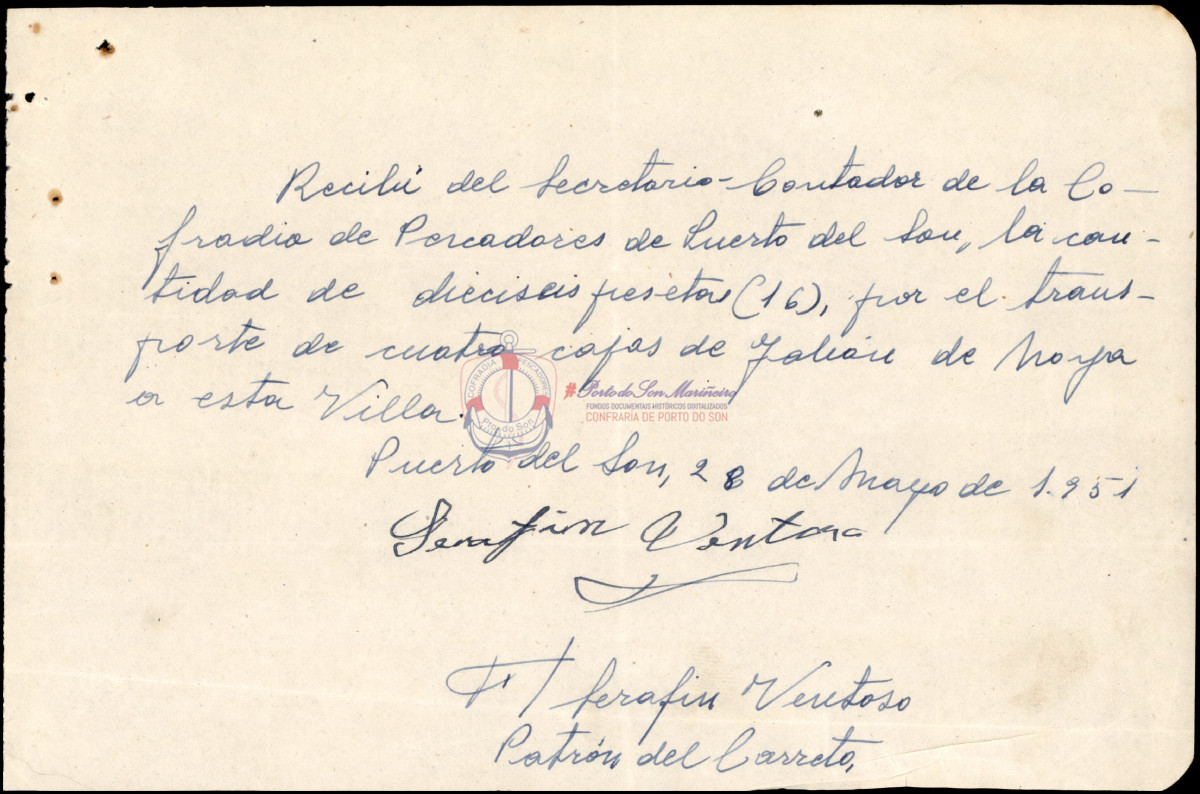 Recibí del Secretario-Contador de la Co-
fradia de Pescadores de Puerto del Son, la can-
tidad de dieciseis pesetas (16), por el trans-
porte de cuatro cajas de Jabón de Noya
a esta Villa.
COFRADIA PESCADORES
Pto. do Son
#Porto do Son Mariñeiro
FONDOS DOCUMENTAIS HISTÓRICOS DIXITALIZADOS
CONFRARÍA DE PORTO DO SON
Puerto del Son, 28 de Mayo de 1.951
Serafin Ventoso
F/ Serafin Ventoso
Patrón del Carreto,